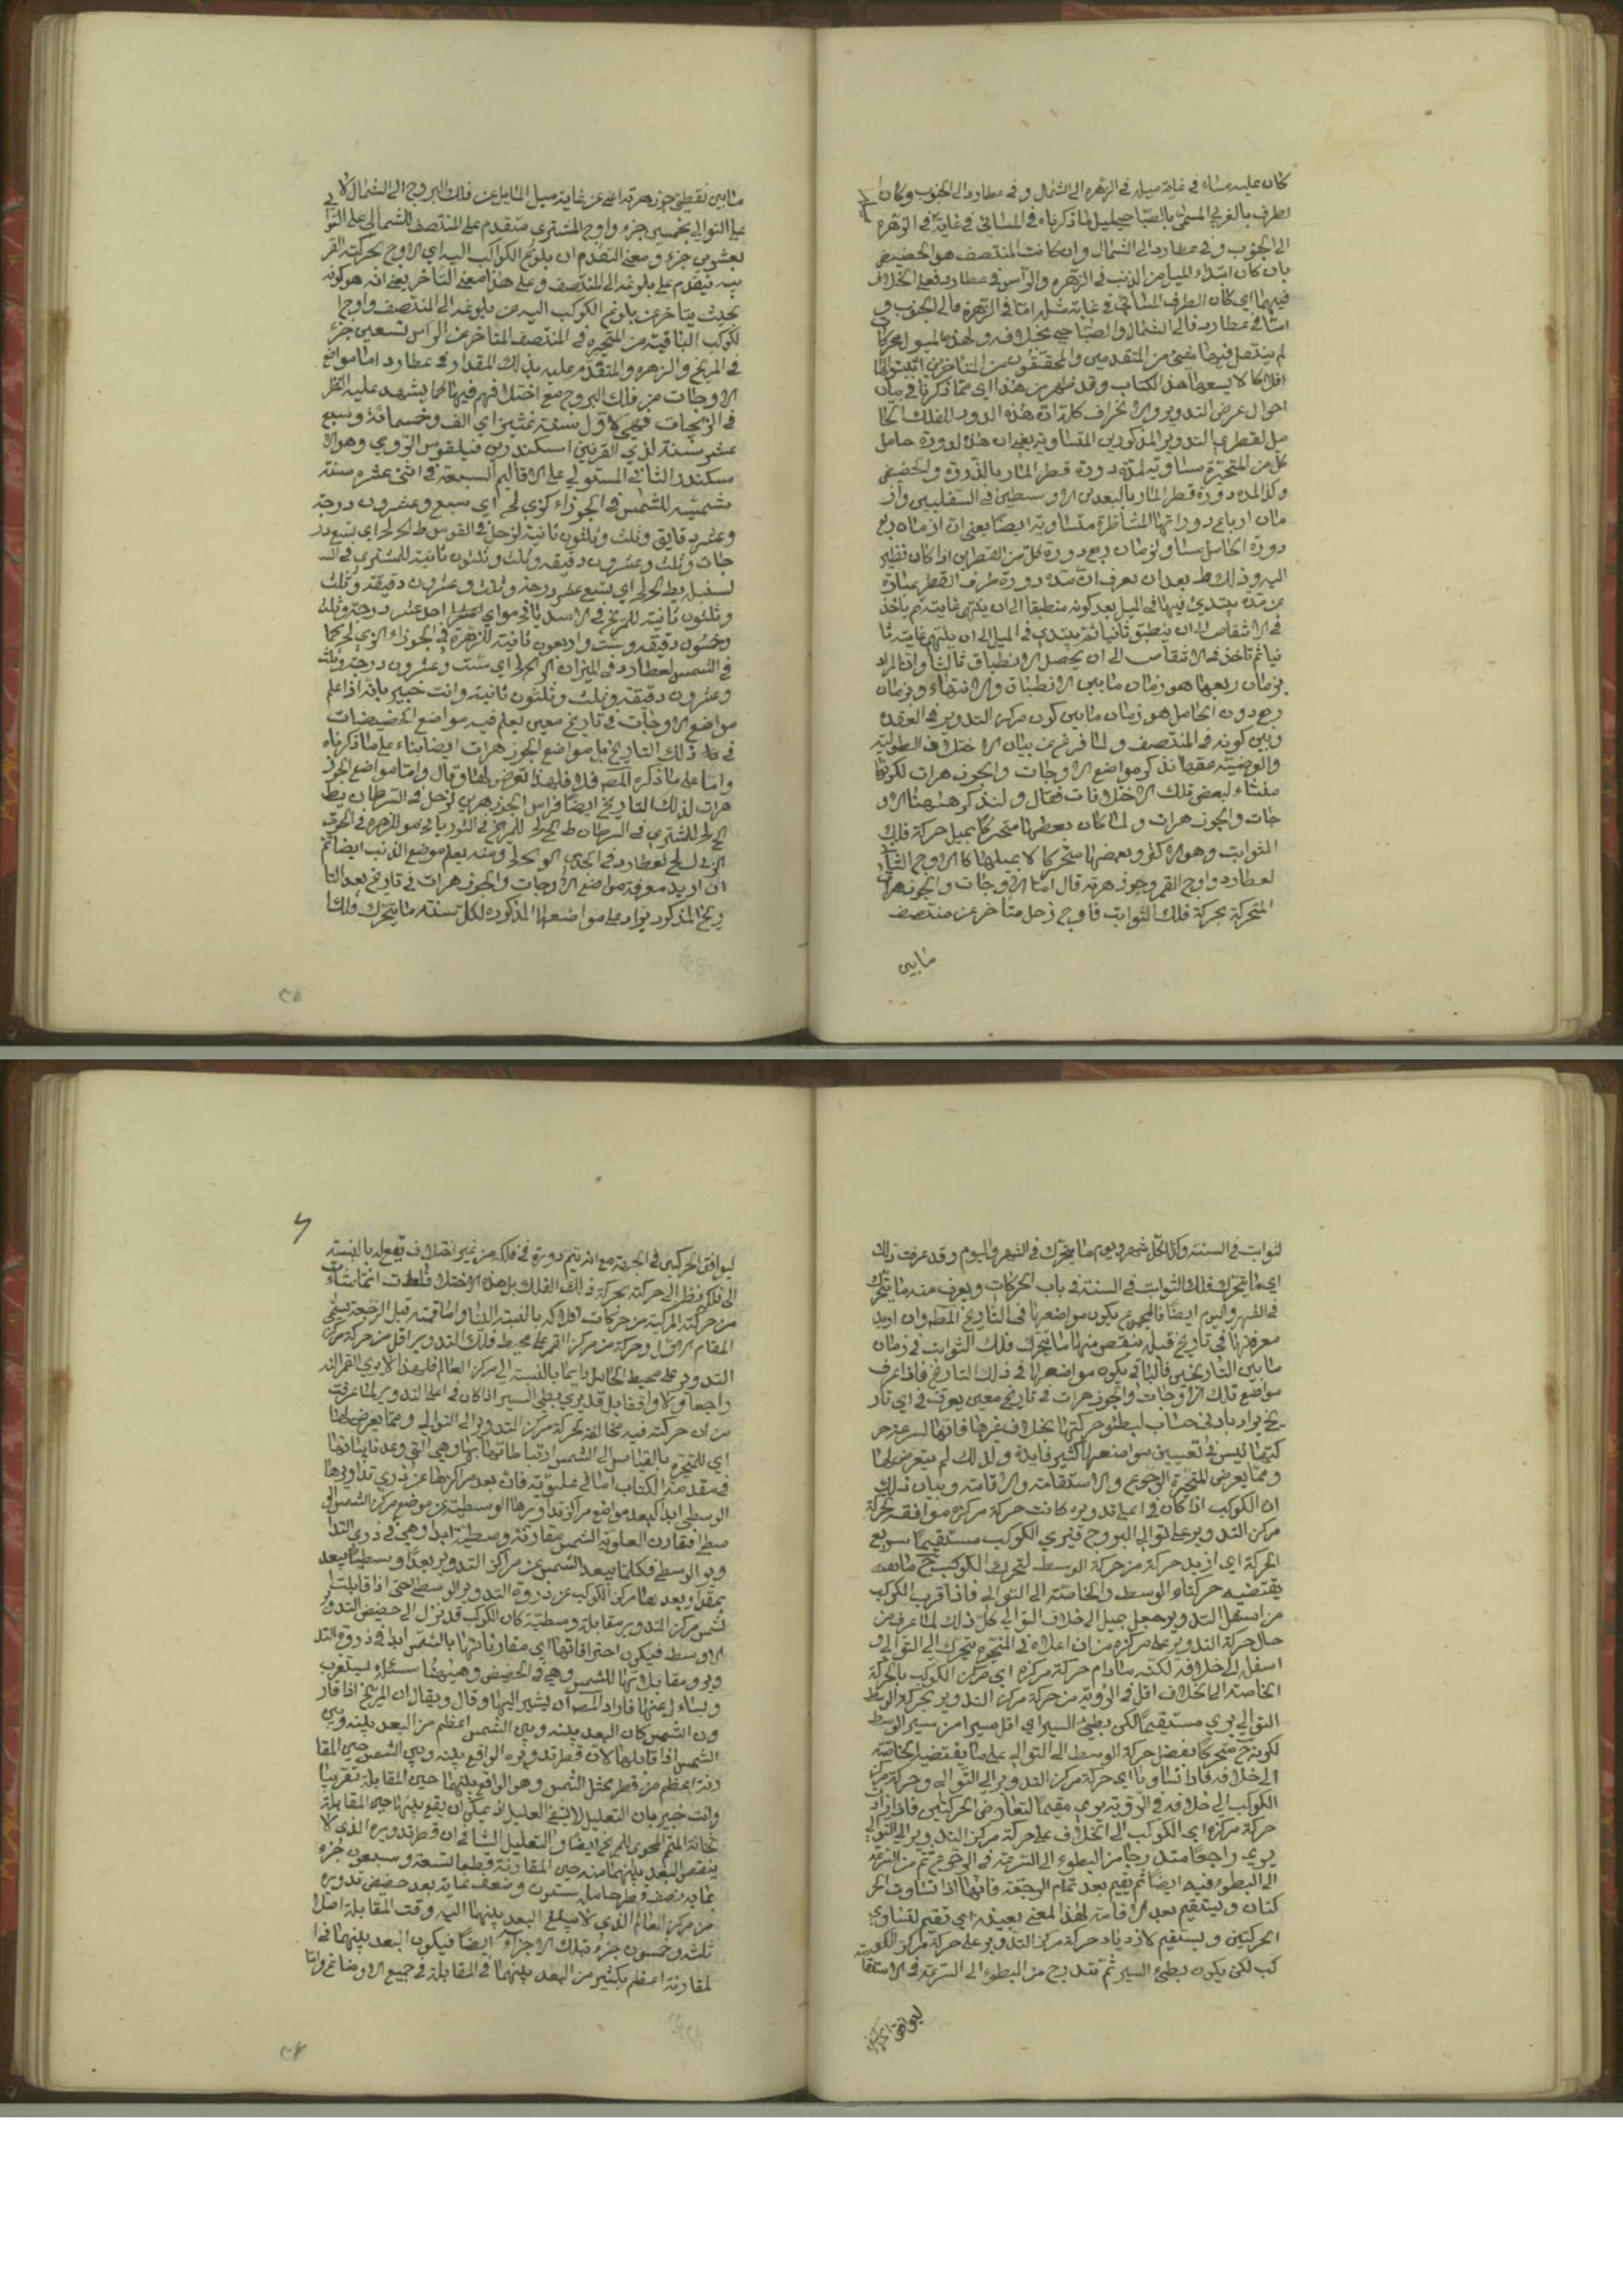 كان عليه مساء في غاية ميله في الزهرة الى الشمال وفي عطارد الى الجنوب وكان
الطرف بالغربي المسمى بالصباحي لما ذكرناه في المسائي في غاية في الزهرة
الى الجنوب وفي عطارد الى الشمال وان كانت المنتصف هو الحضيض
بان كان ابتداء الميل من الذنب في الزهرة والرأس في عطارد فعلى الخلاف
فيهما اي كان الطرف المسائي في غاية ميله اما في الزهرة فالى الجنوب و
اما في عطارد فالى الشمال والصباحي بخلافه ولهذه الميول محركات
لم ينتقل فيها شيء من المتقدمين والمحققون من المتأخرين اثبتوا لها
افلاكا لا يسعها هذا الكتاب وقد ظهر من هذا اي مما ذكرنا في بيان
احوال عرض التدوير والانحراف كلها ان هذه الدورة للفلك الحا
مل لقطري التدوير المذكورين المتساوية يعني ان مدة دورة حامل
كل من المتحيرة مساوية لمدة دورة قطر المار بالذروة والحضيض
وكذا لمدة دورة قطر المار بالبعدين الاوسطين في السفليين وان
ازمان ارباع دوراتها المتناظرة متساوية ايضا يعني ان ازمان ربع
دورة الحامل مساو لزمان ربع دورة كل من القطرين اذا كان نظير
اليه وذلك بعد ان يعرف ان مدة دورة طرف القطر عبارة
عن مدة يبتدئ فيها في الميل بعد كونه منطبقا الى ان ينتهي غايته ثم ياخذ
في الانتقاص الى ان ينطبق ثانيا ثم يبتدئ في الميل الى ان ينتهي غايته ثا
نيا ثم تاخذ في الانتقاص الى ان يحصل الانطباق ثالثا وان المراد
بزمان ربعها هو زمان ما بين الانطباق والانتهاء وبزمان
ربع دورة الحامل هو زمان ما بين كون مركز التدوير في العقدة
وبين كونه في المنتصف ولما فرغ من بيان الاختلاف الطولية
والعرضية عقبها نذكر مواضع الاوجات والجوزهرات لكونها
منشاء لبعض تلك الاختلافات فقال ولنذكر ههنا الاو
جات والجوزهرات ولما كان بعضها متحركا بميل حركة فلك
الثوابت وهو الاكثر وبعضها متحركا لا بميلها كالاوج الثاني
لعطارد واوج القمر وجوزهره قال اما الاوجات والجوزهرات
المتحركة بحركة فلك الثوابت فاوج زحل متاخر عن منتصف
ما بين
ما بين نقطتي جوزهره اعني عن غاية ميل المايل عن فلك البروج الى الشمال لا
على التوالي بخمسين جزء واوج المشتري متقدم على المنتصف الشمالي على التوالي
بعشرين جزء ومعنى التقدم ان بلوغ الكواكب اليه اي الاوج بحركته الغر
بية يتقدم على بلوغه الى المنتصف وعلى هذا معنى التاخر يعني انه هو كونه
بحيث يتاخر عن بلوغ الكوكب اليه عن بلوغه الى المنتصف واوج
الكوكب الباقية من المتحيرة في المنتصف المتاخر عن الراس تسعين جزء
في المريخ والزهرة والمتقدم عليه بذلك المقدار في عطارد اما مواضع
الاوجات من فلك البروج مع اختلافهم فيها كما يشهد عليه النظر
في الزيجات فهي لاول سنة اي الف وخمسمائة وسبع
عشر سنة لذي القرنين اسكندر بن فيلقوس الرومي وهو الا
سكندر الثاني المستولي على الاقاليم السبعة في اثني عشره سنة
شمسية للشمس في الجوزاء كزي لح اي سبع وعشرون درجة
وعشر دقايق وثلث وثلثون ثانية لزحل في القوس ط كح لح اي تسع در
جات وثلث وعشرون دقيقة وثلث وثلثون ثانية للمشتري في الس
نبلة يط كح لح اي تسع عشر درجة وثلث وعشرون دقيقة وثلث
وثلثون ثانية للمريخ في الاسد اي احد عشر درجة وثلث
وخمسون دقيقة وست واربعون ثانية للزهرة في الجوزاء كما
في الشمس لعطارد في الميزان كو كح لح اي ست وعشرون درجة وثلث
وعشرون دقيقة وثلث وثلثون ثانية وانت خبير بانه اذا علم
مواضع الاوجات في تاريخ معين يعلم فيه مواضع الحضيضات
في ذلك التاريخ بل مواضع الجوزهرات ايضا بناء على ما ذكرناه
واما على ما ذكره المصنف فلا فلهذا تعرض لها وقال واما مواضع الجوز
هرات لذلك التاريخ ايضا فراس الجوزهرين لزحل في السرطان يط
كح لح للمشتري في السرطان ط كح لح للمريخ في الثور للزهرة في الحوت
لعطارد في الجدي كو كح لح ومنه يعلم موضع الذنب ايضا ثم
ان اريد معرفة مواضع الاوجات والجوزهرات في تاريخ بعد التا
ريخ المذكور يزاد على مواضعها المذكورة لكل سنة ما يتحرك فلك
٣٨
الثوابت في السنة وكل شهر ويوم ما يتحرك في الشهر واليوم وقد عرفت ذلك
اي ما يتحرك فلك الثوابت في السنة في باب الحركات ويعرف منه ما يتحرك
في الشهر واليوم ايضا فالمجموع يكون مواضعها في التاريخ المط وان اريد
معرفتها في تاريخ قبله ينقص منها ما يتحرك فلك الثوابت في زمان
ما بين التاريخين فالباقي يكون مواضعها في ذلك التاريخ فاذا عرف
مواضع تلك الاوجات والجوزهرات في تاريخ معين يعرف في اي تار
يخ يراد بادنى حساب لبطئو حركتها بخلاف غيرها فانها لسرعة حر
كتها ليس في تعيين مواضعها كثير فايدة ولذلك لم يتعرض لها
ومما يعرض المتحيرة الرجوع والاستقامة والاقامة وبيان ذلك
ان الكوكب اذا كان في اعلى تدويره كانت حركة مركزه موافقة لحركة
مركز التدوير على توالي البروج فيرى الكوكب مستقيما سريع
الحركة اي ازيد حركة من حركة الوسط لتحرك الكوكب ح
يقتضيه حركتاه الوسط والخاصة الى التوالي فاذا قرب الكوكب
من اسفل التدوير جعل يميل الى خلاف التوالي كل ذلك لما عرف من
حال حركة التدوير على مركزه من ان اعلاه في المتحيرة يتحرك الى التوالي و
اسفله الى خلافه لكنه ما دام حركة مركزه اي مركز الكوكب بالحركة
الخاصة الى الخلاف اقل في الرؤية من حركة مركز التدوير بحركة الوسط
التوالي يرى مستقيما لكن بطيئ السير اي اقل سيرا من سير الوسط
لكونه ح متحركا بفضل حركة الوسط الى التوالي على ما يقتضيه الخاصة
الى خلافه فاذا تساويا اي حركة مركز التدوير الى التوالي وحركة مركز
الكوكب الى خلافه في الرؤية يرى مقيما لتعارض الحركتين فاذا زاد
حركة مركزه اي الكوكب الى الخلاف على حركة مركز التدوير الى التوالي
يرى راجعا متدرجا من البطوء الى السرعة في الرجوع ثم من السرعة
الى البطوء فيه ايضا ثم يقيم بعد تمام الرجعة فانها اذا تساوت الحر
كتان ويستقيم بعد الاقامة لهذا المعنى بعينه اي تقيم لتساوي
الحركتين ويستقيم لازدياد حركة مركز التدوير على حركة مركز الكو
كب لكن يكون بطيئ السير ثم تتدرج من البطوء الى السرعة في الاستقامة
ليوافق الحركتين
ليوافق الحركتين في الجهة مع انه يتم دورة في فلكه من غير اختلاف يقع له بالنسبة
الى فلكه نظرا الى حركته بحركة ذلك الفلك بل هذه الاختلافات انما نشأت
من حركته المركبة من حركات افلاكه بالنسبة الينا واقامته قبل الرجعة يسمى
المقام الاول وحركة من مركز القمر على محيط فلك التدوير اقل من حركة مركز
التدوير على محيط الحامل دايما بالنسبة الى مركز العالم فلهذا لا يرى القمر
راجعا ولا واقفا بل قد يرى بطي السير اذا كان في اعلى التدوير لما عرفت
من ان حركته فيه مخالفة لحركة مركز التدوير الى التوالي ومما يعرض لها
اي للمتحيرة بالقياس الى الشمس ارتباطاتها بها وهي التي وعدنا بيانها
في مقدمة الكتاب اما في علوية فان بعد مراكزها عن ذرى تداويرها
الوسطى ابدا كبعد مواضع مراكز تداويرها الوسطية عن موضع مركز الشمس الو
سطي فتقارن العلوية الشمس مقارنة وسطية ابدا وهي في ذرى التدا
وير الوسطى فكلما يبعد الشمس عن مراكز التدوير بعدا وسطيا يبعد
بمقدار بعدها مركز الكوكب عن ذروة التدوير الوسطى حتى اذا قابلت
الشمس مركز التدوير مقابلة وسطية كان الكوكب قد نزل الى حضيض التدوير
الاوسط فيكون احتراقاتها اي مقارناتها بالشمس ابدا في ذروة التد
وير ومقابلاتها للشمس وهي في الحضيض وههنا مسئلة تستغرب
ويتساءل عنها فاراد المصنف ان يشير اليها وقال ويقال ان المريخ اذا قار
ن الشمس كان البعد بينه وبين الشمس اعظم من البعد بينه وبين
الشمس اذا قابلها لان قطر تدويره الواقع بينه وبين الشمس حين المقا
رنة اعظم من قطر ممثل الشمس وهو الواقع بينهما حين المقابلة تقريبا
وانت خبير بان التعليل لا يشفي العليل اذ يمكن ان يقع بينهما حين المقابلة
ثخانة المتمم المحوي للمريخ ايضا والتعليل الشافي ان قطر تدويره الذي لا
ينقص البعد بينهما منه حين المقارنة قطعا تسعة وسبعون جزء
مما به نصف قطر حامله ستون وضعف غاية بعد حضيض تدويره
من مركز العالم الذي لا يبلغ البعد بينهما اليه وقت المقابلة اصلا
ثلثة وخمسون جزء بتلك الاجزاء ايضا فيكون البعد بينهما في ا
لمقارنة اعظم بكثير من البعد بينهما في المقابلة في جميع الاوضاع واما
٣٩